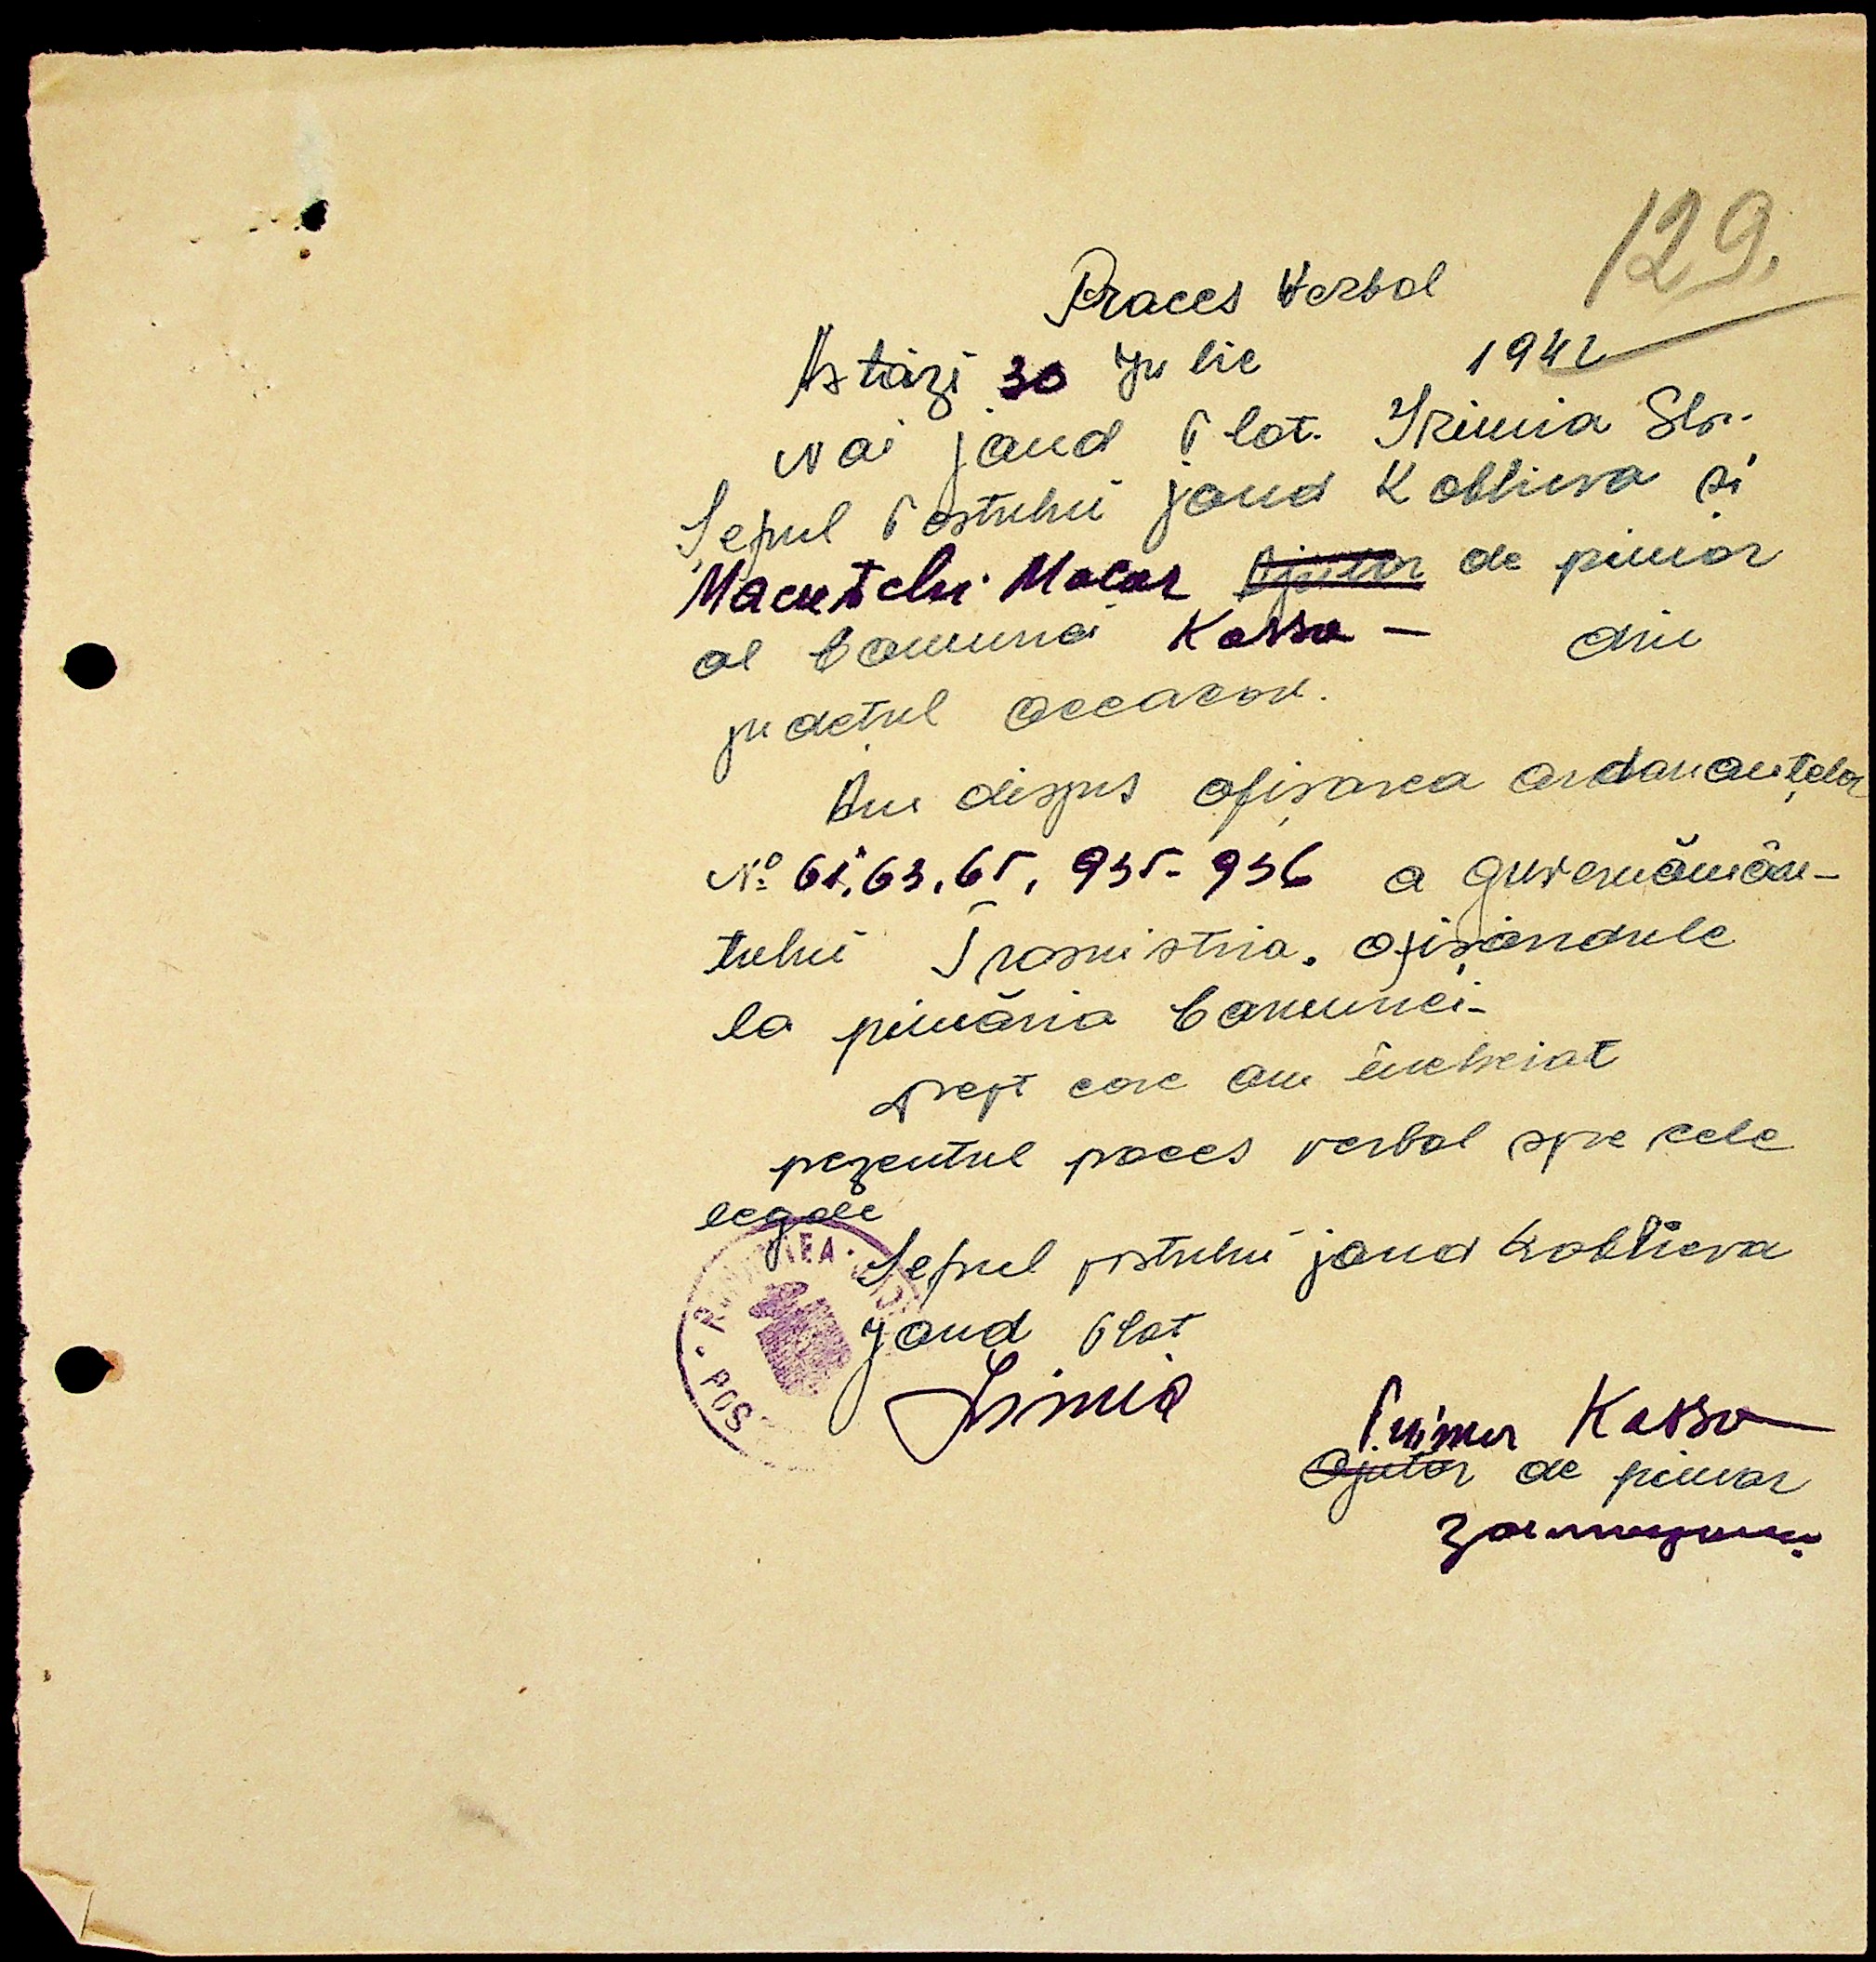 129.
Proces Verbal
Astăzi 30 Iulie 1942
Noi jand Plot. Irimia Str.
Șeful Postului jand Koblieva si
Macutchi Macar Ajutor de pimar
al Comunei Kassa — din
judetul Oceacov.
Am dispus afișarea ordonanțelor
Nº 61, 63, 65, 935-936 a guvernămân-
tului Trasnistria. afișândule
la pimăria Comunei-
Drept care am încheiat
pezentul poces verbal spre cele
legale
Șeful postului jand Koblieva
Jand Plot
Irimia
Primar Kassa
Ajutor de pimar
POS